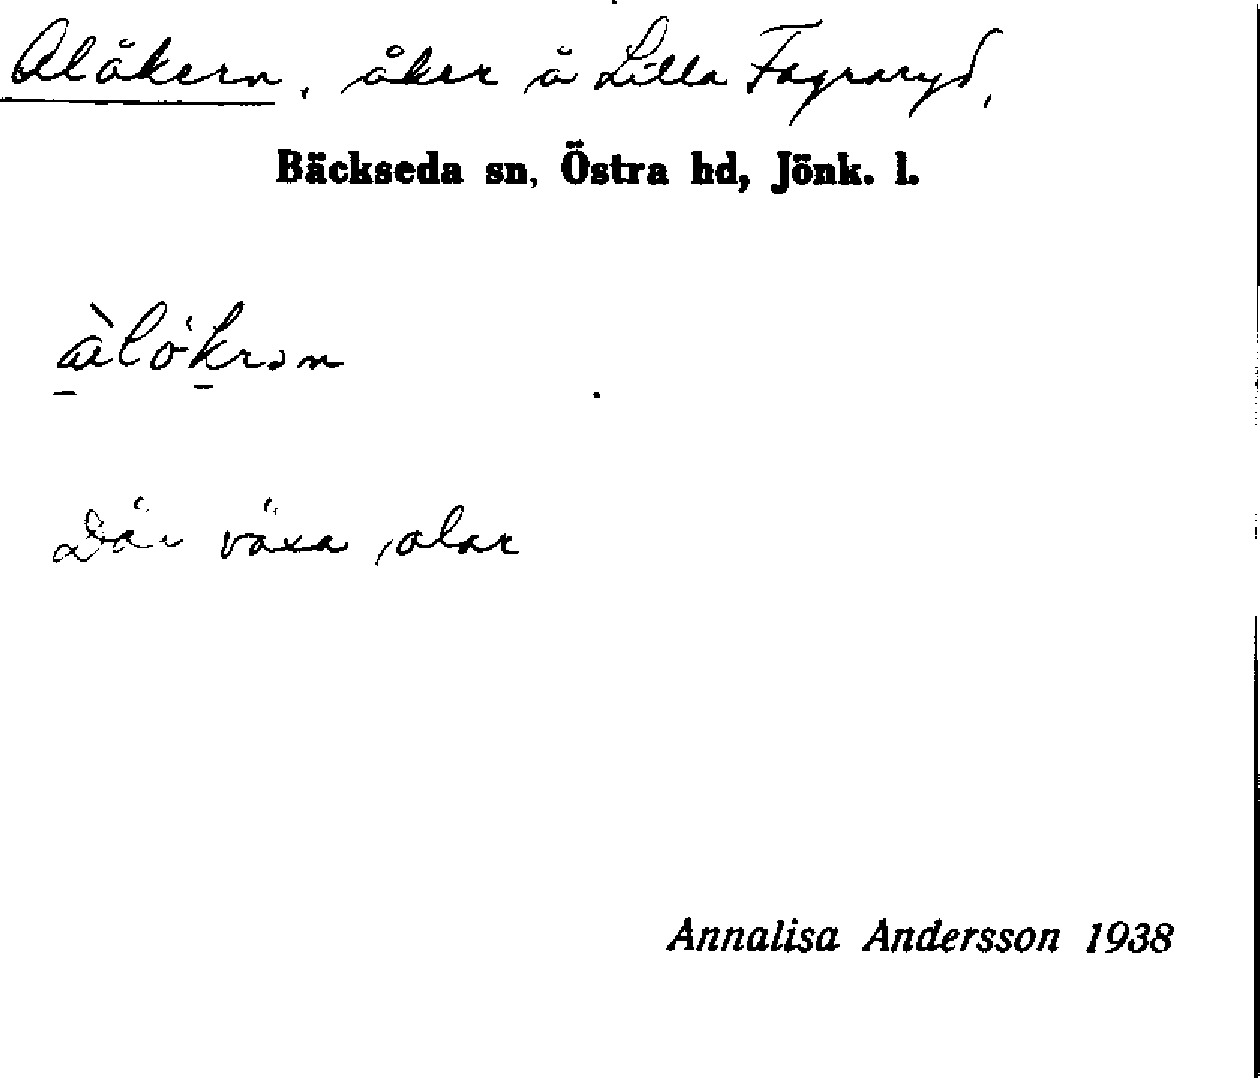 Alåkern, åker å Lilla Fagraryd,
Bäckseda sn, Östra hd, Jönk. l.
Där växa alar
Annalisa Andersson 1938